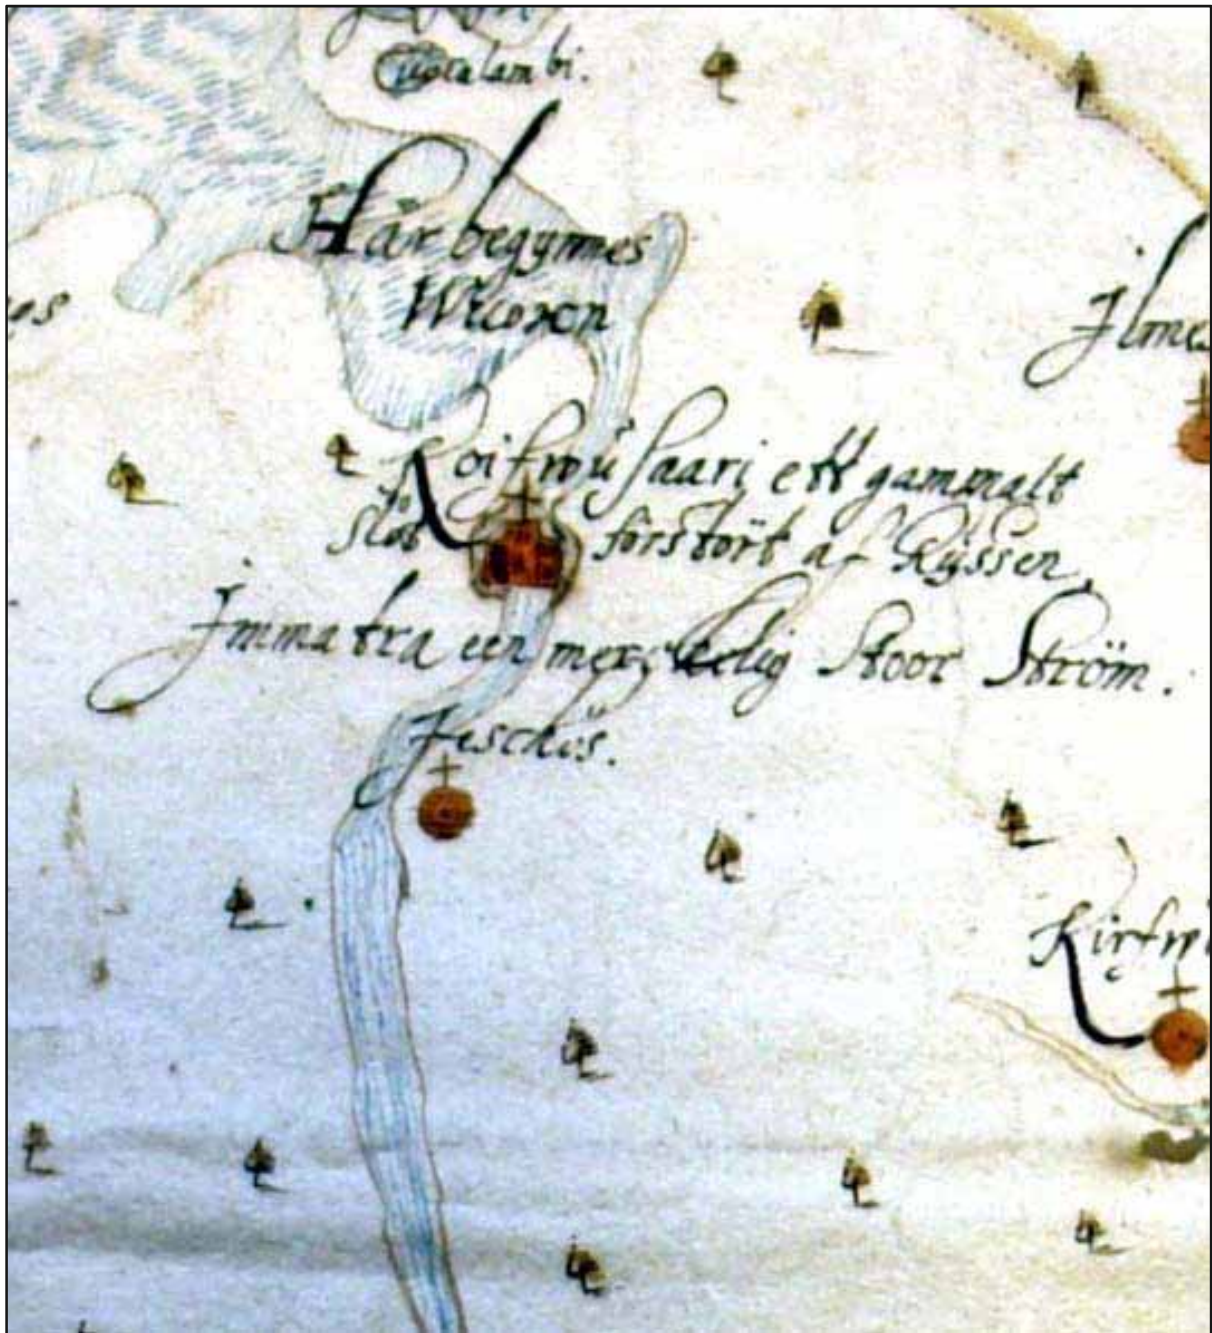 Här begynnes
Wuoxen
Jlme
Koifwusaari ett gammalt
slot förstört af Ryssen
Jmmatra een merckelig Stoor Ström.
Jeschis.